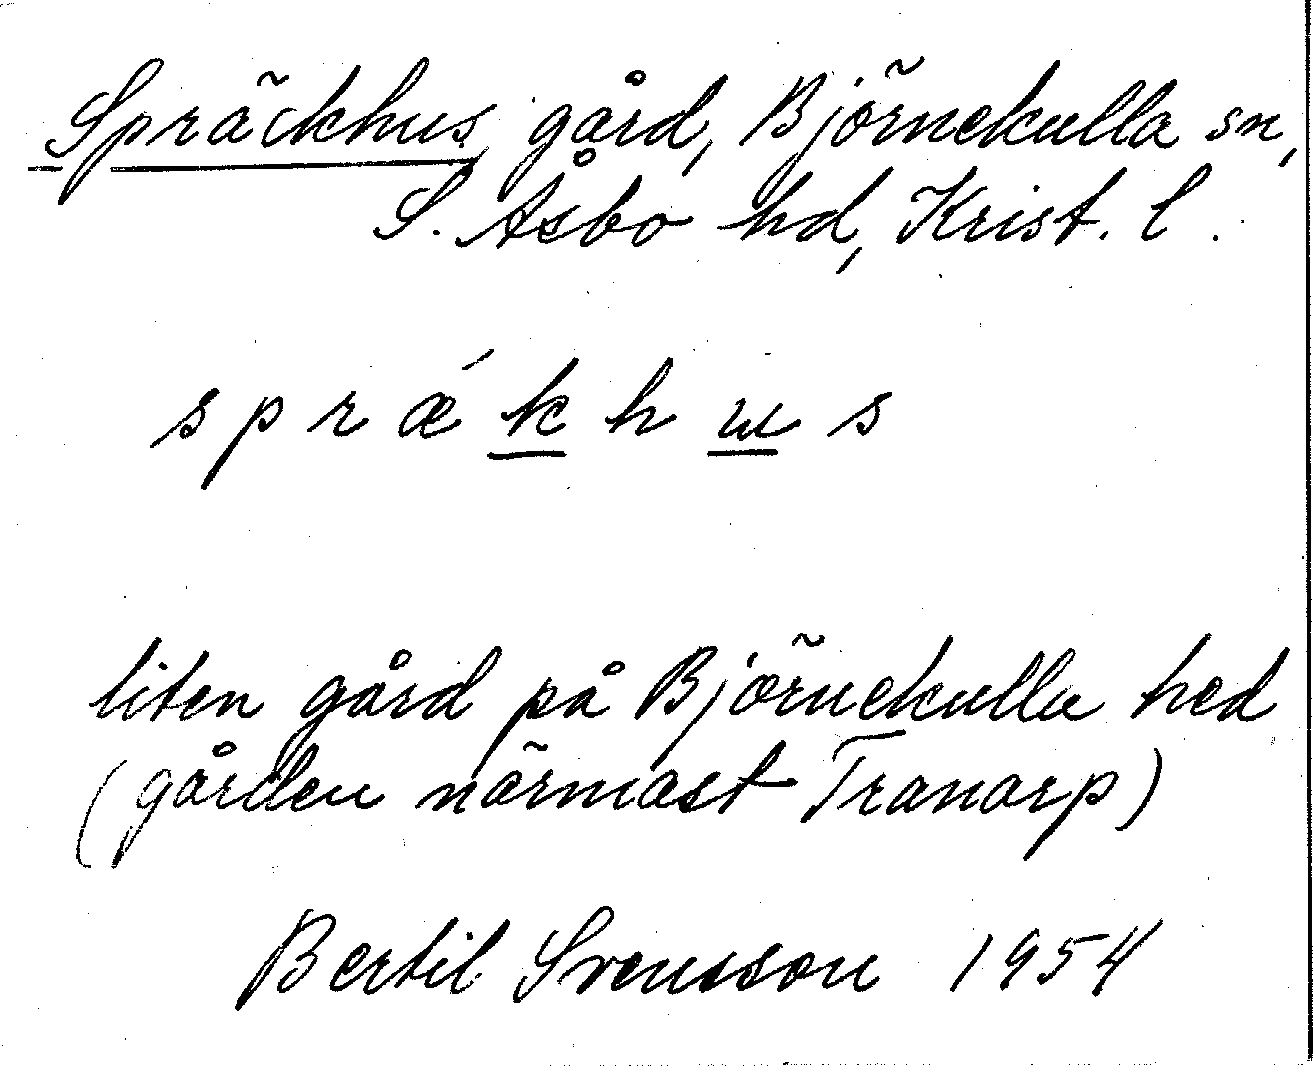 Spräckhus, gård, Björnekulla sn,
S. Åsbo hd, Krist. l.
s p r ǽ k h ɯ s
liten gård på Björnekulla hed
(gården närmast Tranarp)
Bertil Svensson 1954